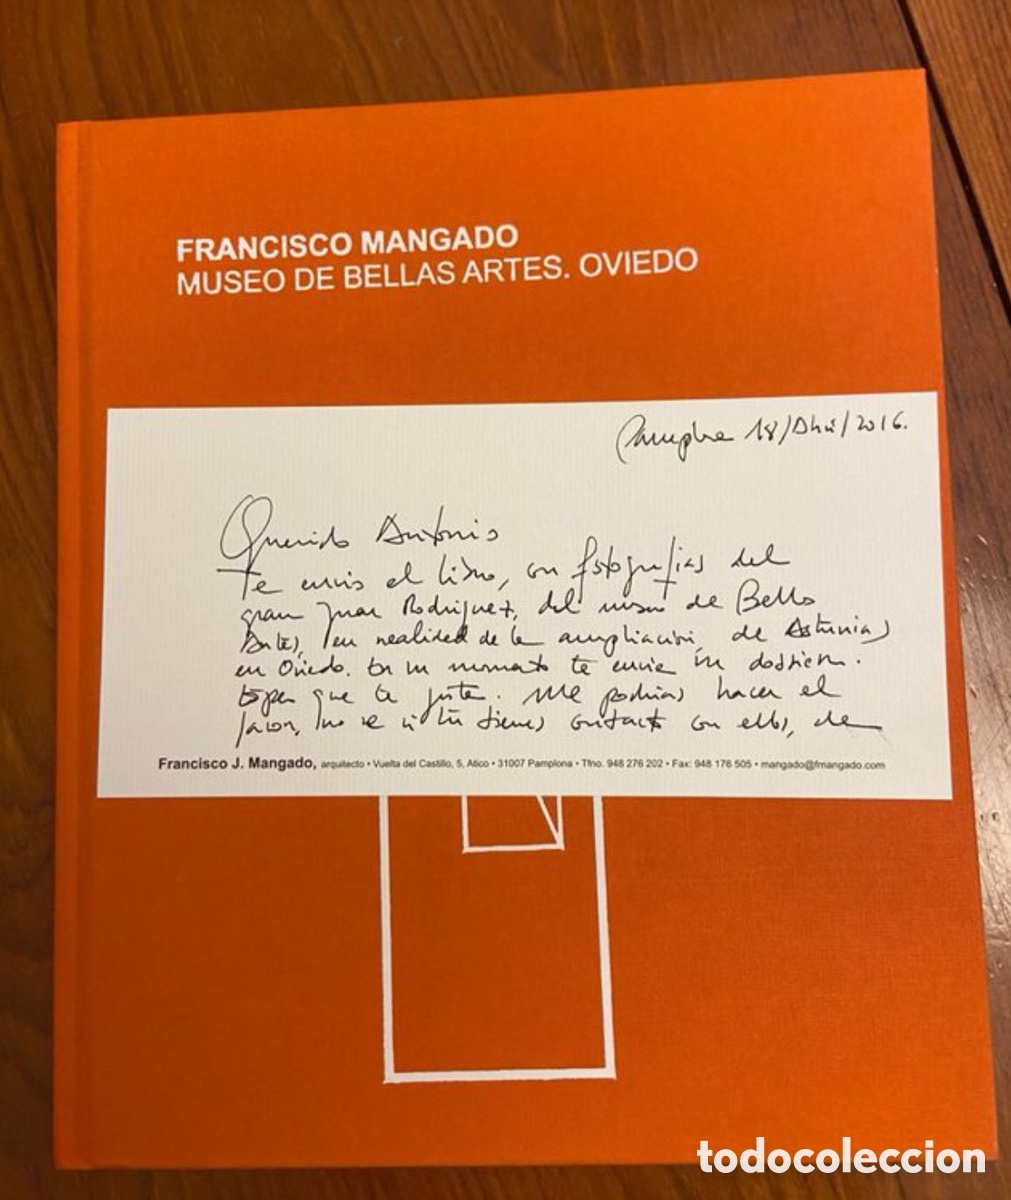 FRANCISCO MANGADO
MUSEO DE BELLAS ARTES. OVIEDO
Pamplona 18/Abril/2016.
Querido Antonio
Te envio el libro, con fotografias del
gran Juan Rodriguez, del museo de Bellas
Artes, en realidad de la ampliación, de Asturias
en Oviedo. En un momento te envie un dossier.
Espero que te guste. Me podrias hacer el
favor, no se si tú tienes contacto con ellos, de
Francisco J. Mangado, arquitecto • Vuelta del Castillo, 5, Atico • 31007 Pamplona • Tfno: 948 276 202 • Fax: 948 176 505 • mangado@fmangado.com
todocoleccion